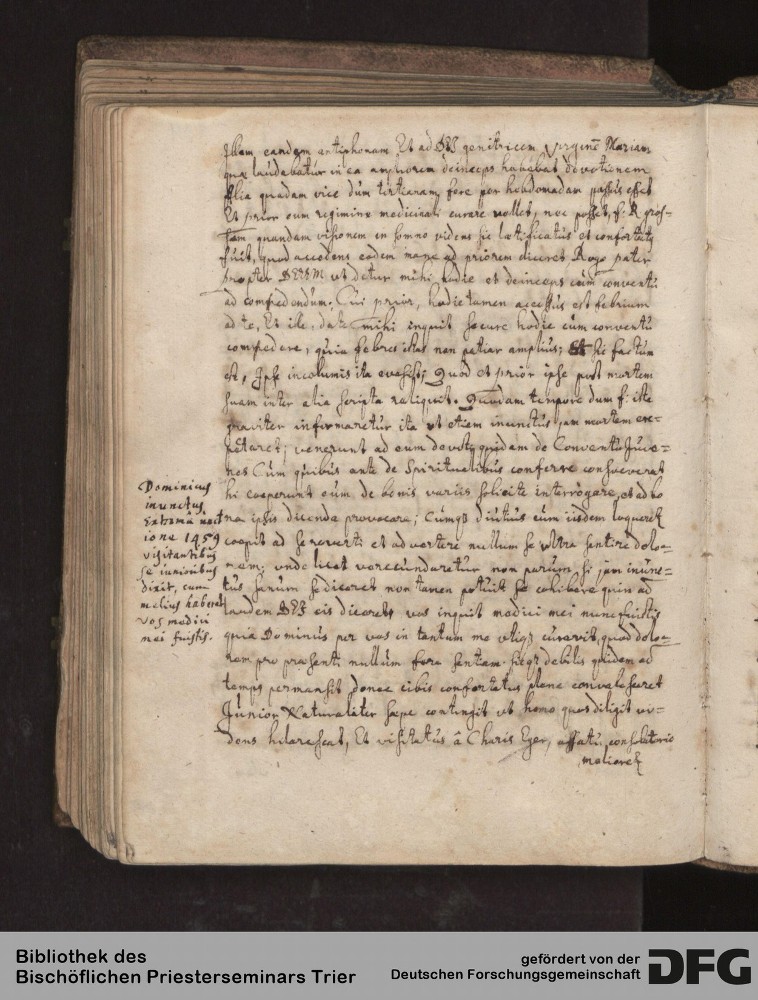 illam eandem antiphonam. Et ad DEI genitricem Virginē Mariam
quæ laudabatur in ea ampliorem deinceps habebat devotionem
Alia quadam vice dum tertianam fere per hebdomadam passus esset
Et prior eum regimine medicinali curare vellet, nec posset, f: R.
quandam visionem in somno videns sic lætificatus et confortatꝰ
fuit, quod accedens eodem mane ad priorem diceret Rogo pater
propter DEUM ut detur mihi hodie et deinceps cum conventu
ad comedendum; Cui prior, hodie tamen accessus est febrium
ad te, Et ille, date mihi inquit secure hodie cum conventu
comedere, quia febres istas non patiar amplius; Et sic factum
est, Ipse incolumis ita evasit; Quod et prior ipse post mortem
suam inter alia scripta reliquit. Quodam tempore dum f: iste
graviter infirmaretur ita ut etiam inunctus jam mortem ex=
petaret; venerunt ad eum devoti quidam de Conventu Juve=
nes Cum quibus ante de Spiritualibus conferre consueverat
hi coeperunt eum de bonis variis solicite interrogare, et ad bo
na ipsis dicenda provocare; Cumqꝫ diutius cum iisdem loqueretꝛ
coepit ad se reverti et advertere nullum se ultra sentire dolo=
rem; unde licet verecundaretur non parum, si jam inunc=
tus sanum se diceret non tamen potuit se cohibere quin ad
laudem DEI eis diceret, vos inquit medici mei nunc fuistis
quia Dominus per vos in tantum me curavit, quod dolo=
rem pro præsenti nullum fere sentiam. sicqꝫ debilis quidem ad
tempꝰ permansit donec cibis confortatus plene convalesceret
Junior Naturaliter sæpe contingit ut homo quos diligit vi=
dens hilarescat, Et visitatus â Charis Eger, consolatorio
melioretꝛ
Dominicus
inunctus
Extrema unct
ione 1459
visitantibus
se iunioribus
dixit, cum
melius haberet
vos medici
mei fuistis.
Bibliothek des
Bischöflichen Priesterseminars Trier
gefördert von der
Deutschen Forschungsgemeinschaft
DFG